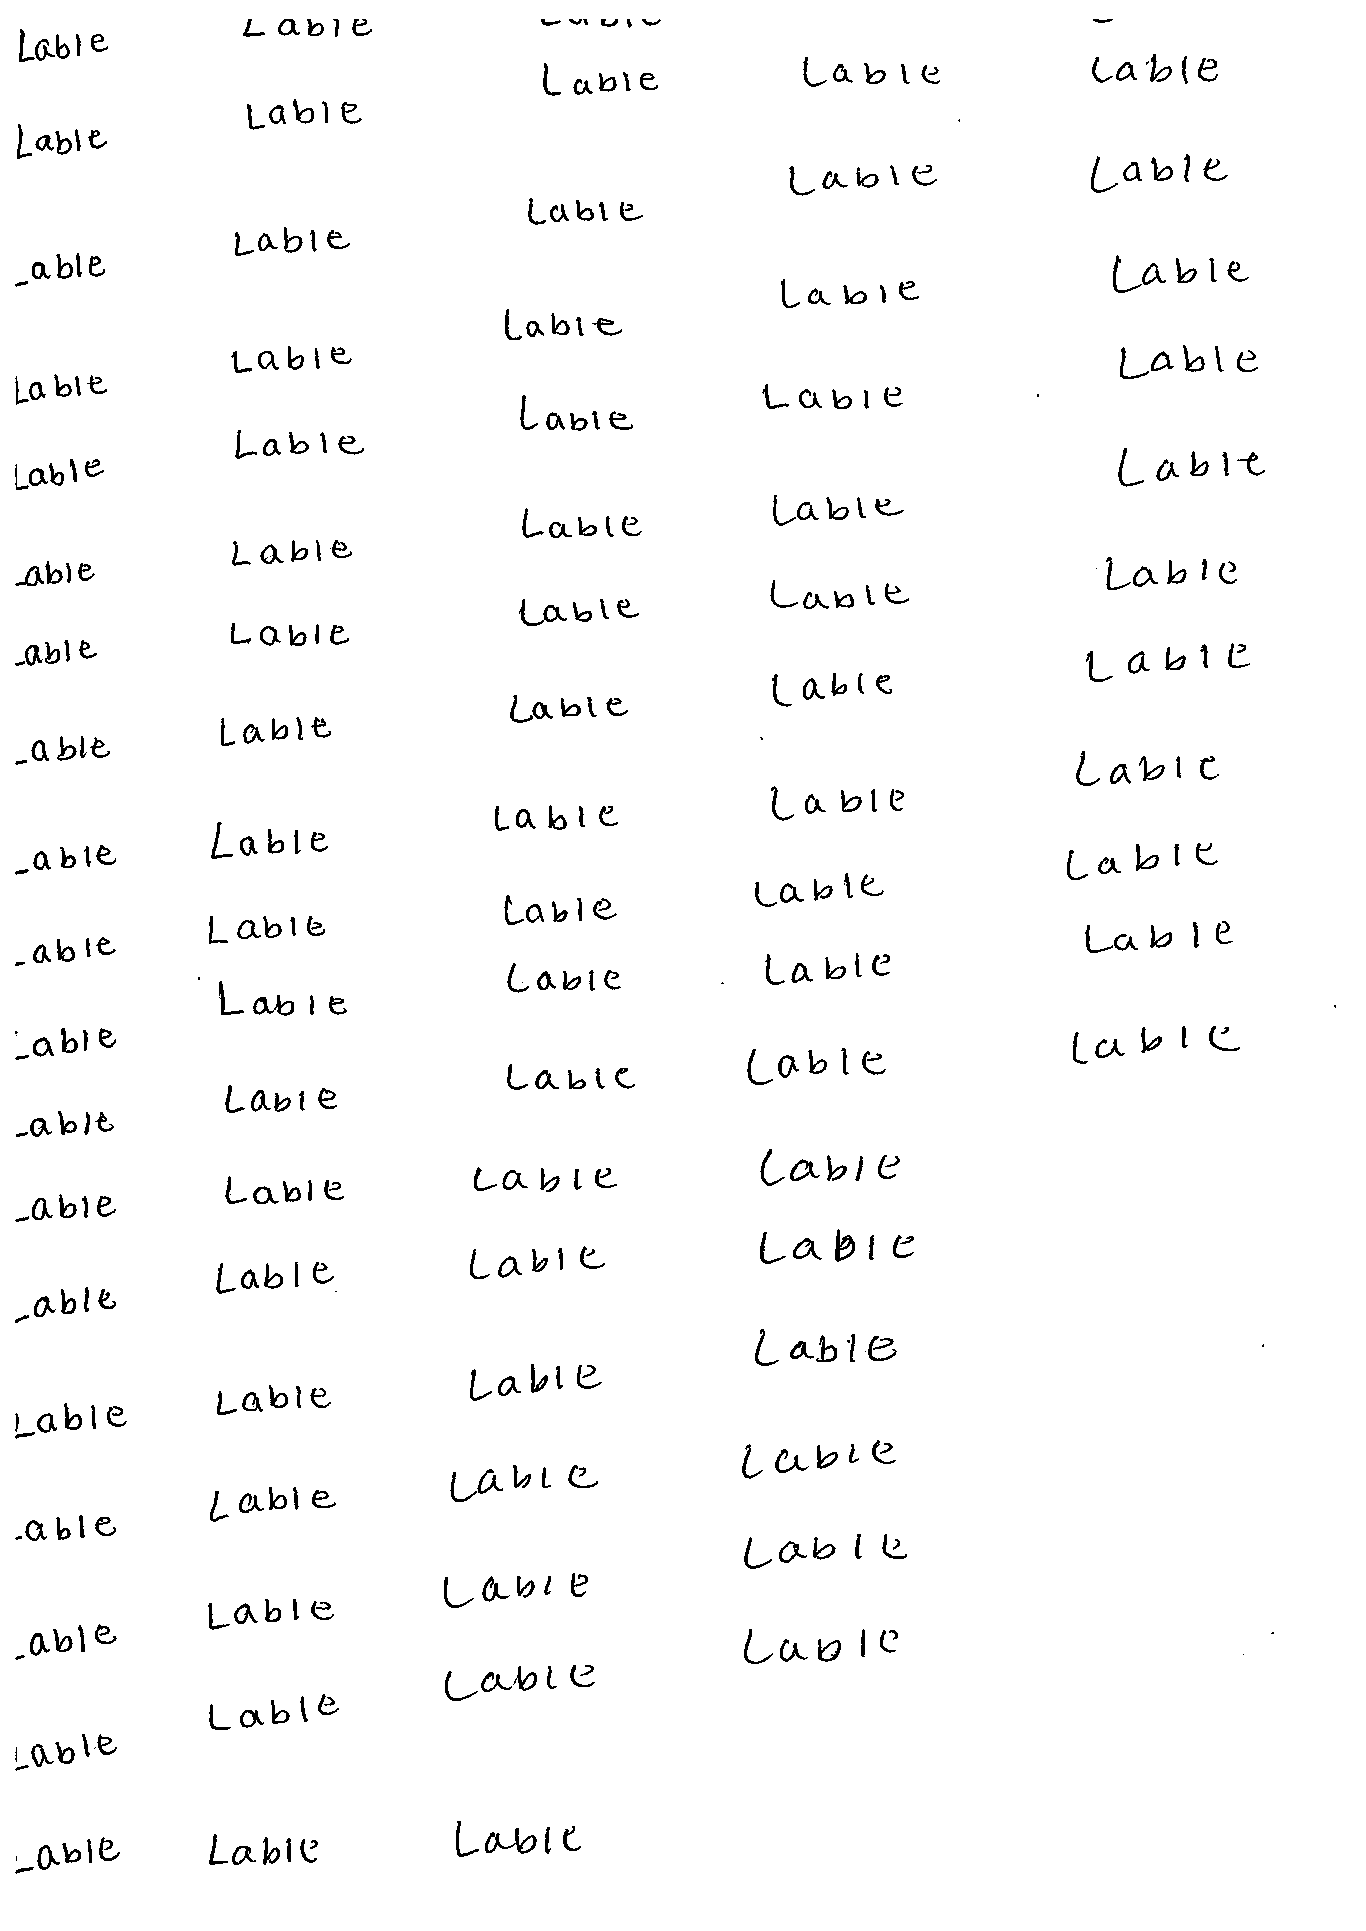 Lable Lable
Lable Lable Lable Lable Lable
Lable Lable Lable Lable Lable
Lable Lable Lable Lable Lable
Lable Lable Lable Lable Lable
Lable Lable Lable Lable Lable
Lable Lable Lable Lable Lable
Lable Lable Lable Lable Lable
Lable Lable Lable Lable Lable
Lable Lable Lable Lable Lable
Lable Lable Lable Lable Lable
Lable Lable Lable Lable Lable
Lable Lable Lable Lable
Lable Lable Lable Lable
Lable Lable Lable Lable
Lable Lable Lable Lable
Lable Lable Lable Lable
Lable Lable Lable Lable
Lable Lable Lable